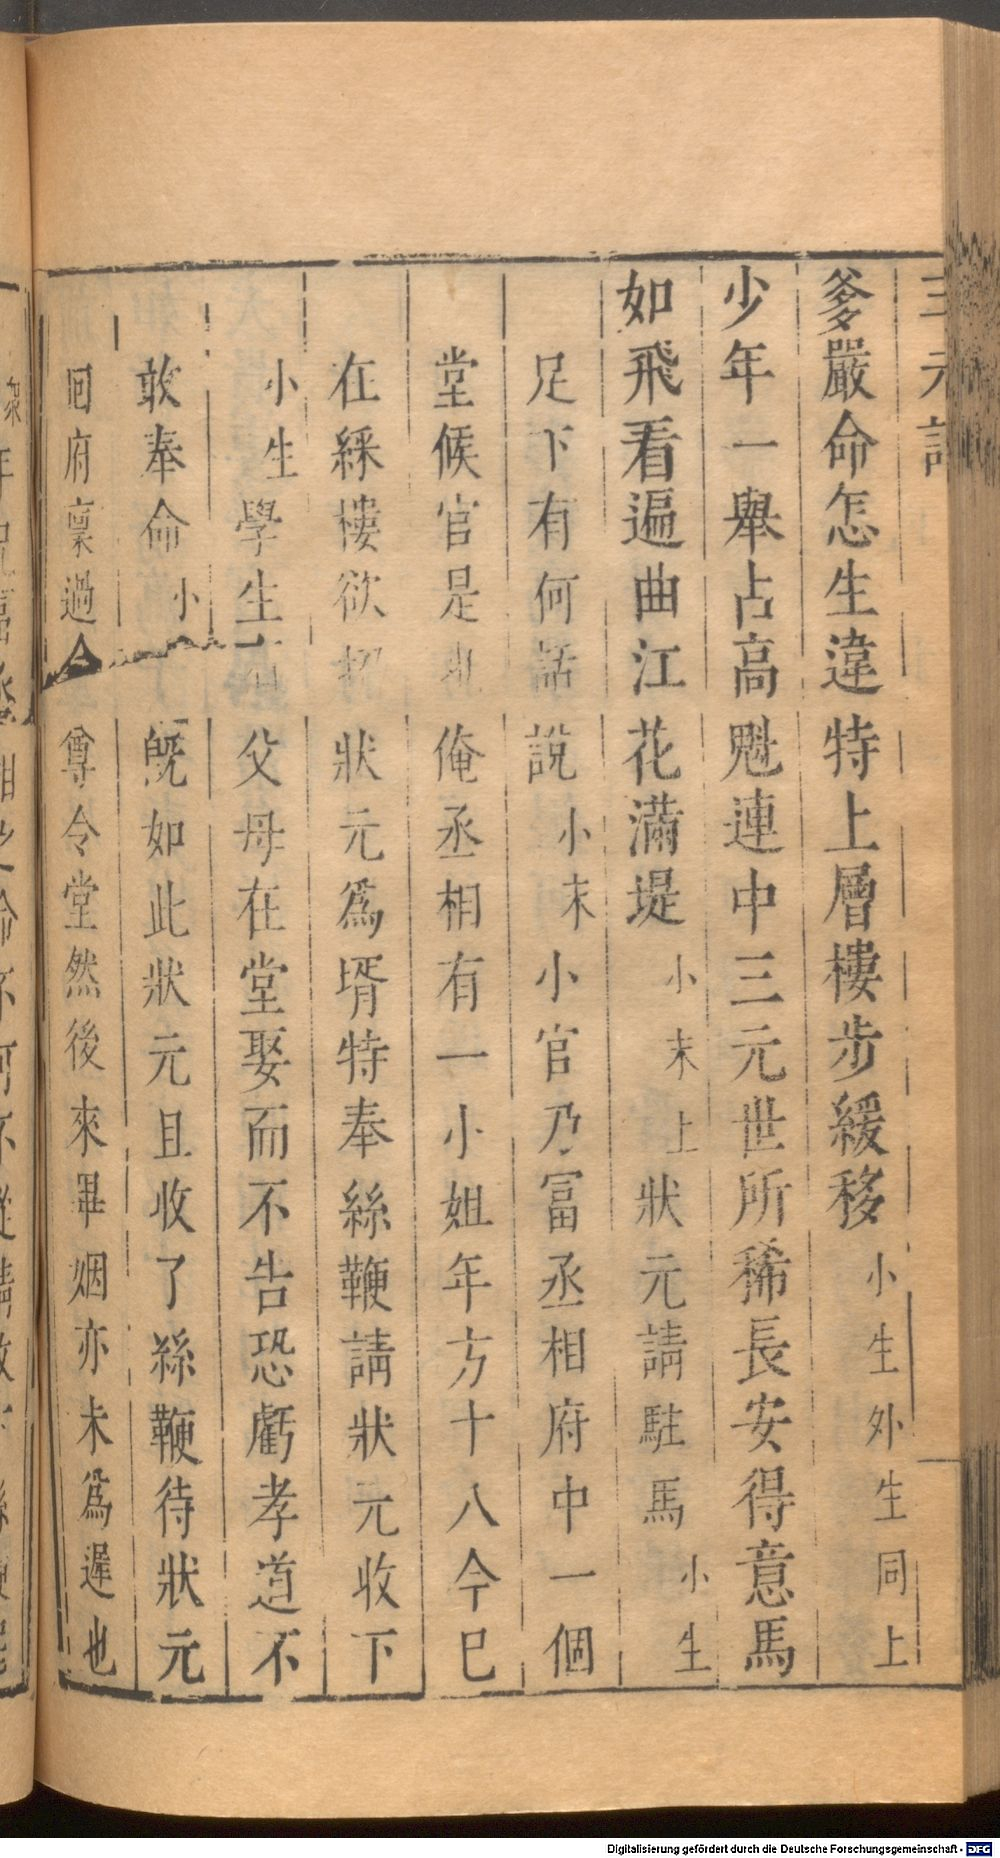 三元記
爹嚴命怎生違特上層樓步緩移小生外生同上
少年一舉占高魁連中三元世所稀長安得意馬
如飛看遍曲江花滿堤小末上狀元請駐馬小生
足下有何話說小末小官乃冨丞相府中一個
堂候官是也俺丞相有一小姐年方十八今巳
在綵樓欲招狀元爲壻特奉絲鞭請狀元收下
小生學生有父母在堂娶而不告恐虧孝道不
敢奉命小旣如此狀元且收了絲鞭待狀元
囘府稟過令尊令堂然後來畢烟亦未爲遲也
Digitalisierung gefördert durch die Deutsche Forschungsgemeinschaft - DFG